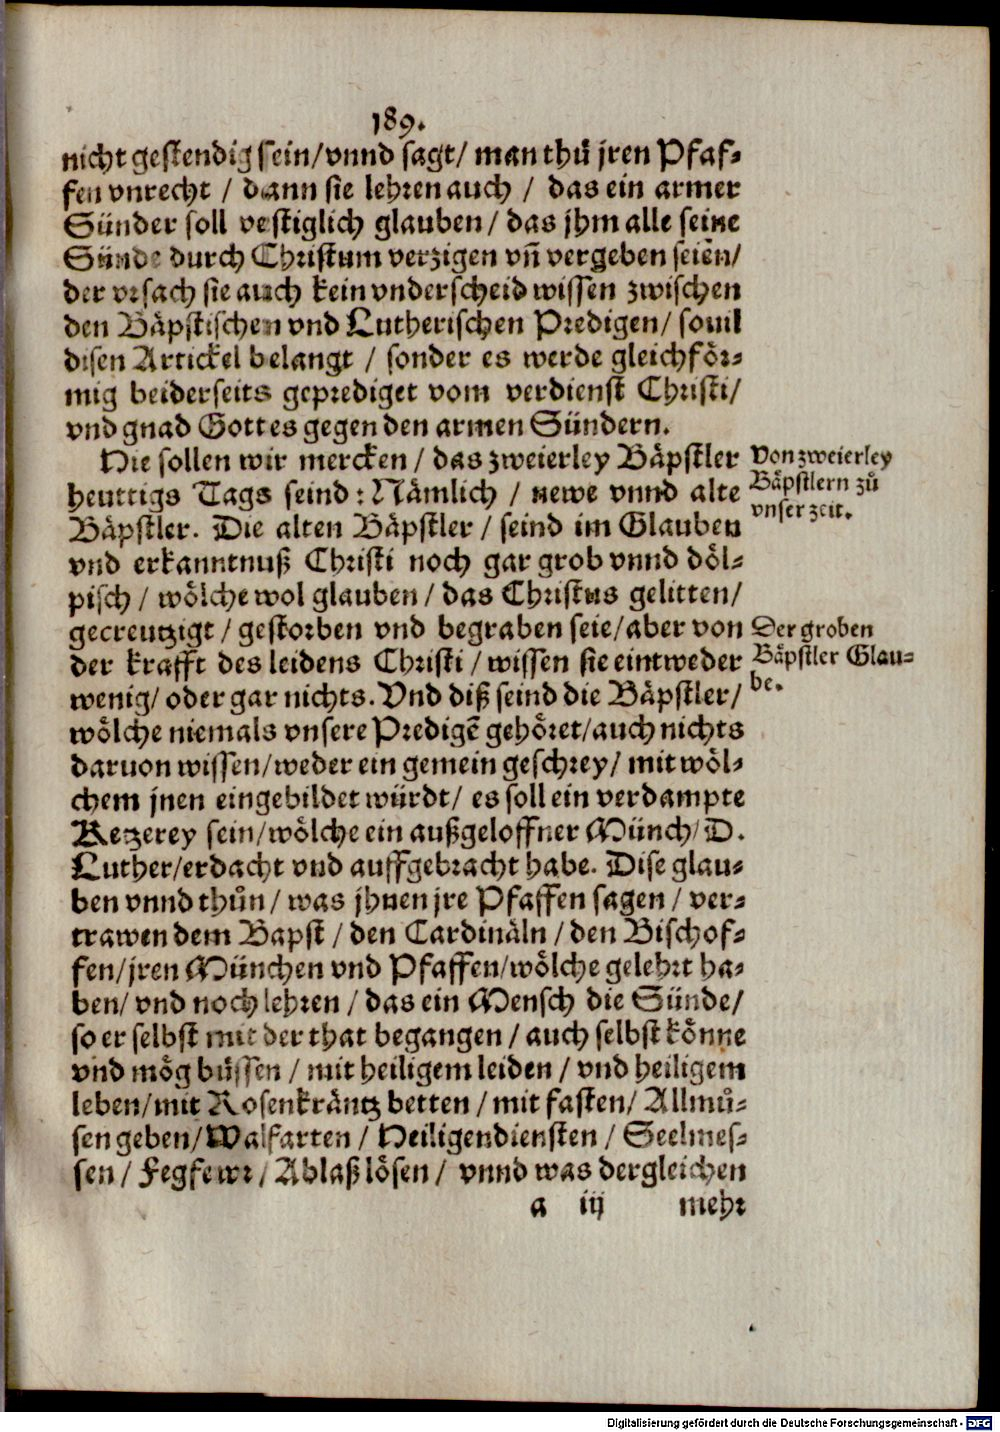 189.
nicht gestendig sein/vnnd sagt/ man thů jren Pfaf-
fen vnrecht / dann sie lehren auch / das ein armer
Sünder soll vestiglich glauben / das jhm alle seine
Sünde durch Christum verzigen vñ vergeben seien/
der vrsach sie auch kein vnderscheid wissen zwischen
den Bäpstischen vnd Lutherischen Predigen/ souil
disen Artickel belangt / sonder es werde gleichför-
mig beiderseits geprediget vom verdienst Christi/
vnd gnad Gottes gegen den armen Sündern.
Hie sollen wir mercken / das zweierley Bäpstler
heuttigs Tags seind : Nämlich / newe vnnd alte
Bäpstler. Die alten Bäpstler / seind im Glauben
vnd erkanntnuß Christi noch gar grob vnnd döl-
pisch / wölche wol glauben / das Christus gelitten/
gecreutzigt / gestorben vnd begraben seie/aber von
der krafft des leidens Christi / wissen sie eintweder
wenig/ oder gar nichts. Vnd diß seind die Bäpstler/
wölche niemals vnsere Predigẽ gehöret/auch nichts
daruon wissen/weder ein gemein geschrey/ mit wöl-
chem jnen eingebildet würdt/ es soll ein verdampte
Ketzerey sein/wölche ein außgeloffner Münch/ D.
Luther/erdacht vnd auffgebracht habe. Dise glau-
ben vnnd thůn / was jhnen jre Pfaffen sagen / ver-
trawen dem Bapst / den Cardinäln / den Bischof-
fen/jren München vnd Pfaffen/wölche gelehrt ha-
ben/ vnd noch lehren / das ein Mensch die Sünde/
so er selbst mit der that begangen / auch selbst könne
vnd mög büssen / mit heiligem leiden / vnd heiligem
leben/mit Rosenkräntz betten / mit fasten/ Allmů-
sen geben/Walfarten / Heiligendiensten / Seelmes-
sen / Fegfewr / Ablaß lösen / vnnd was dergleichen
a iij mehr
Von zweierley
Bäpstlern zů
vnser zeit.
Der groben
Bäpstler Glau-
be.
Digitalisierung gefördert durch die Deutsche Forschungsgemeinschaft - DFG